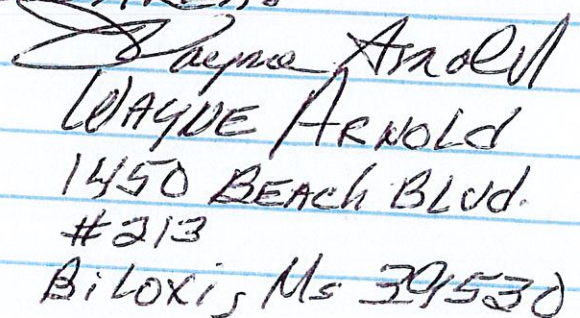 Wayne Arnold
WAYNE ARNOLd
1450 BEACh BLVd.
#213
BiLOXi, Ms 39530